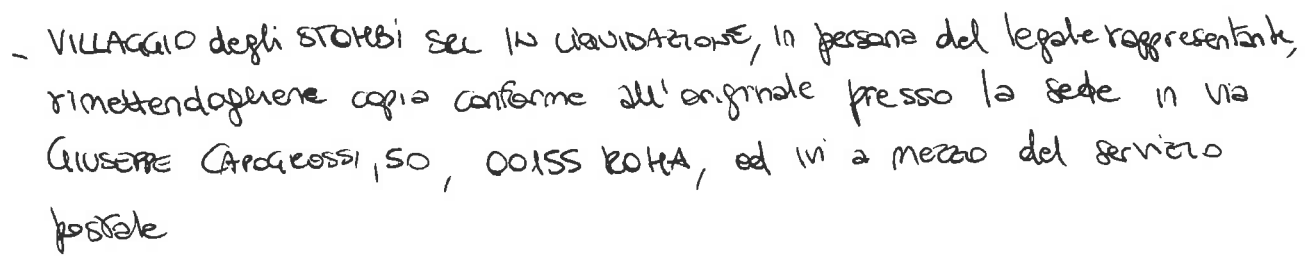 - VILLAGGIO degli STOMBI SRL IN LIQUIDAZIONE, in persona del legale rappresentante,
rimettendogliene copia conforme all'originale presso la sede in via
GIUSEPPE CAPOGROSSI, 50, 00155 ROMA, ed ivi a mezzo del servizio
postale